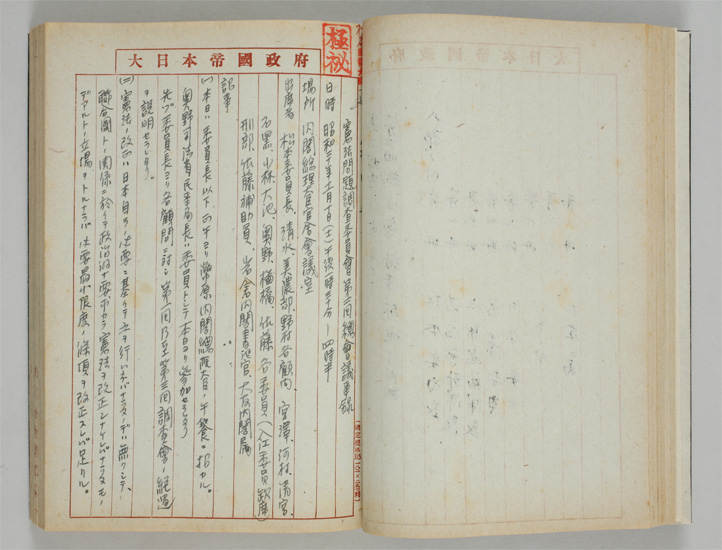 極秘
大日本帝國政府
憲法問題調査委員會第二回總會議事録
日時 昭和二十年十一月十日(土)午後一時三十分―四時半
場所 内閣總理大臣官舎會議室
出席者 松本委員長、清水、美濃部、野村各顧問、宮澤、河村、清宮、
石黒、小林、大池、奥野、楢橋、佐藤各委員(入江委員欠席)
刑部、佐藤補助員、岩倉内閣書記官、大友内閣属
記事
(一)本日ハ委員長以下正午ヨリ幣原内閣總理大臣ノ午餐ニ招カル。
奥野司法省民事局長ハ委員トシテ本日ヨリ参加セラレタリ
先ヅ委員長ヨリ各顧問ニ対シ第一回乃至第三回調査會ノ経過
ヲ説明セラレタリ。
(二)憲法ノ改正ハ日本自ラノ必要ニ基イテ之ヲ行ハネバナラヌノデハ無クシテ、
聯合國トノ関係ニ於イテ政治的ナ要求カラ憲法ヲ改正シナケレバナラヌモノ
デアルトノ立場ヲトルナラバ 必要最小限度ノ條項ヲ改正スレバ足リル。